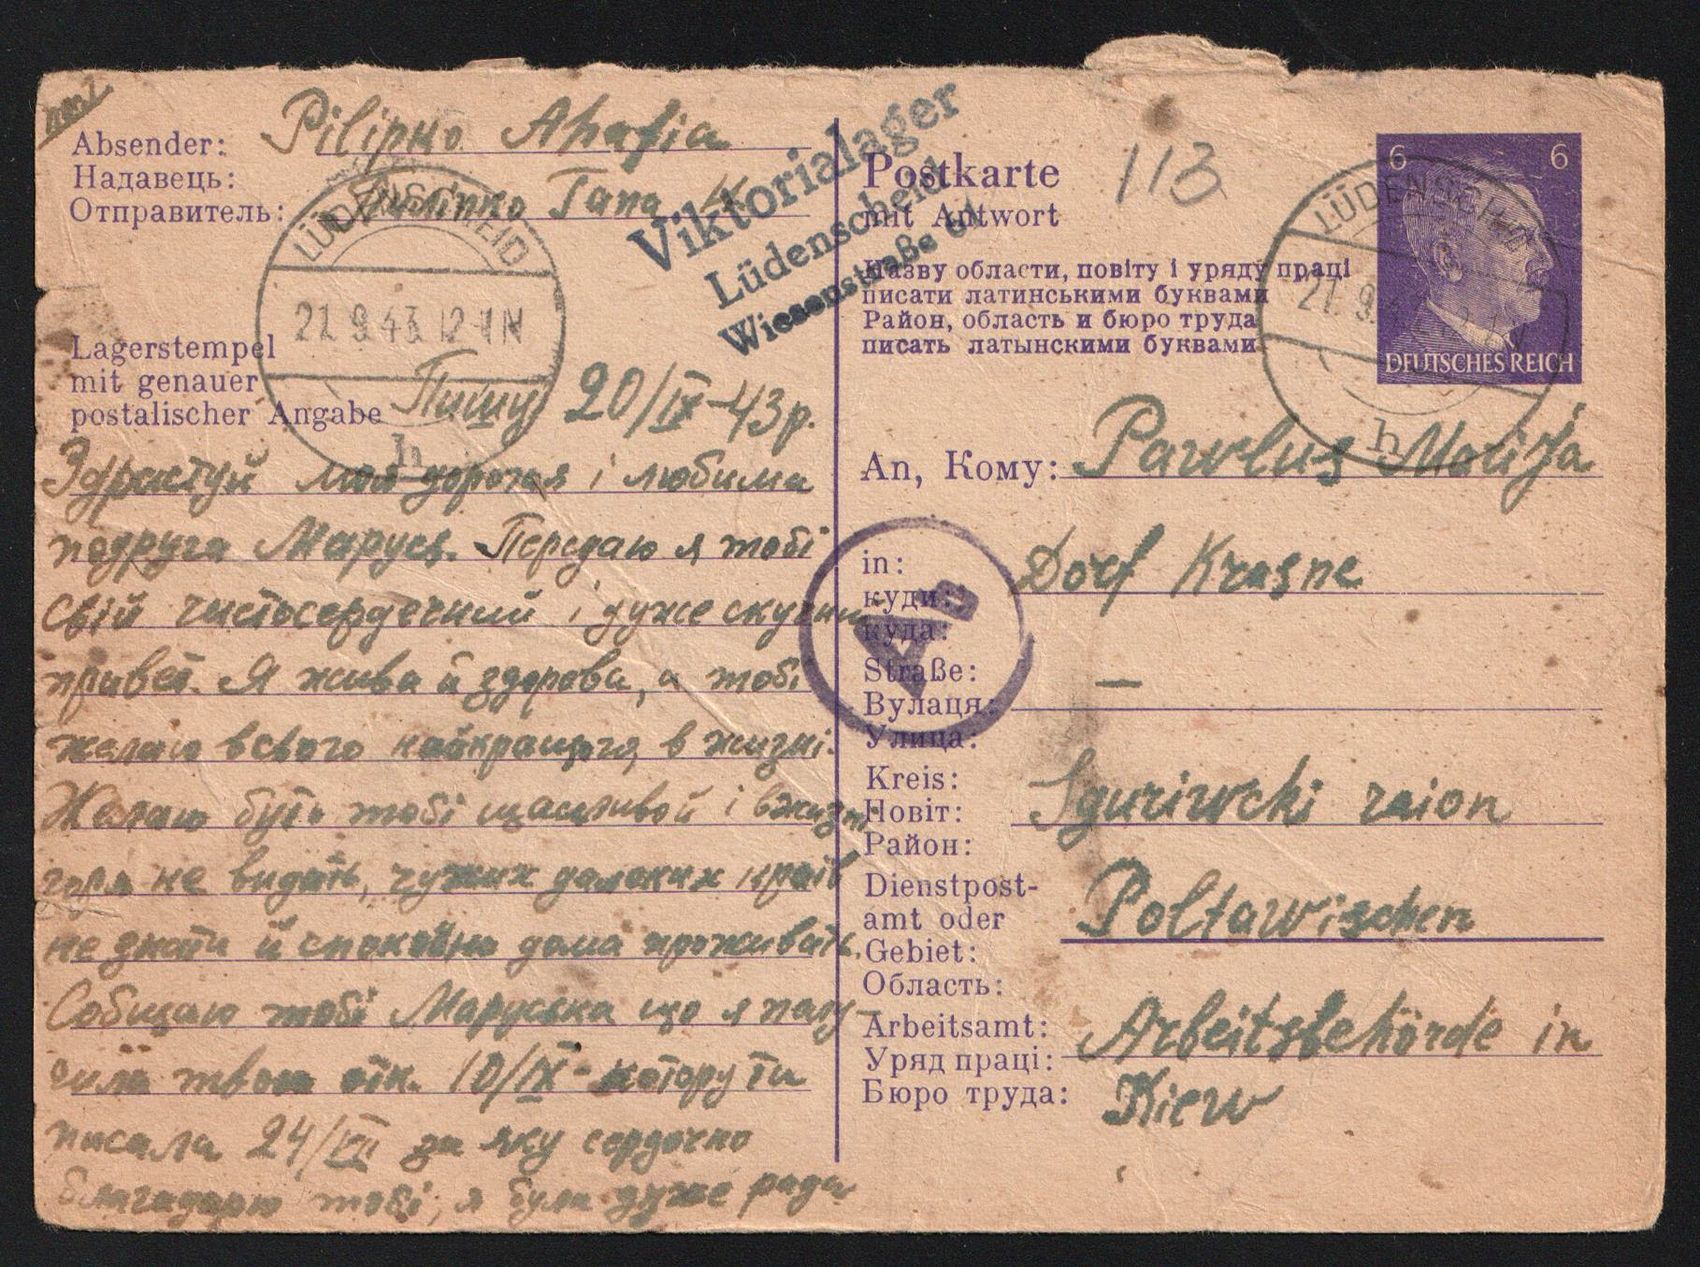 Absender: Pilipko Ahafia
Надавець:
Отправитель: Галя
LÜDENSCHEID
21.9.43.12-1N
h
Viktorialager
Lüdenscheid
Wiesenstraße 61
Lagerstempel
mit genauer
postalischer Angabe
Пишу 20/IX-43р.
Здрастуй моя дорогая і любима
подруга Маруся. Передаю я тобі
свій чистосердечний і дуже скучний
привет. Я жива й здорова, а тобі
желаю всього найкращого, в жизні.
Желаю буть тобі щасливой і в жизні
горя не видать, чужих далеких краів
не знати й спокойно дома проживать.
Собщаю тобі Маруська що я палу-
чила твою отк. 10/IX- котору ти
писала 24/VIII за яку сердечно
благадарю тобі, я була дуже рада
Postkarte
mit Antwort
113
Назву области, повіту і уряду праці
писати латинськими буквами
Район, область и бюро труда
писать латынскими буквами
6 6
DEUTSCHES REICH
LÜDENSCHEID
21.9.43
h
An, Кому: Pawlus Marija
in: Dorf Krasne
куди:
куда:
A
Straße: —
Вулаця:
Улица:
Kreis: Sguriwcki raion
Новіт:
Район:
Dienstpost-
amt oder Poltawischen
Gebiet:
Область:
Arbeitsamt: Arbeitsbehörde in
Уряд праці:
Бюро труда: Kiew